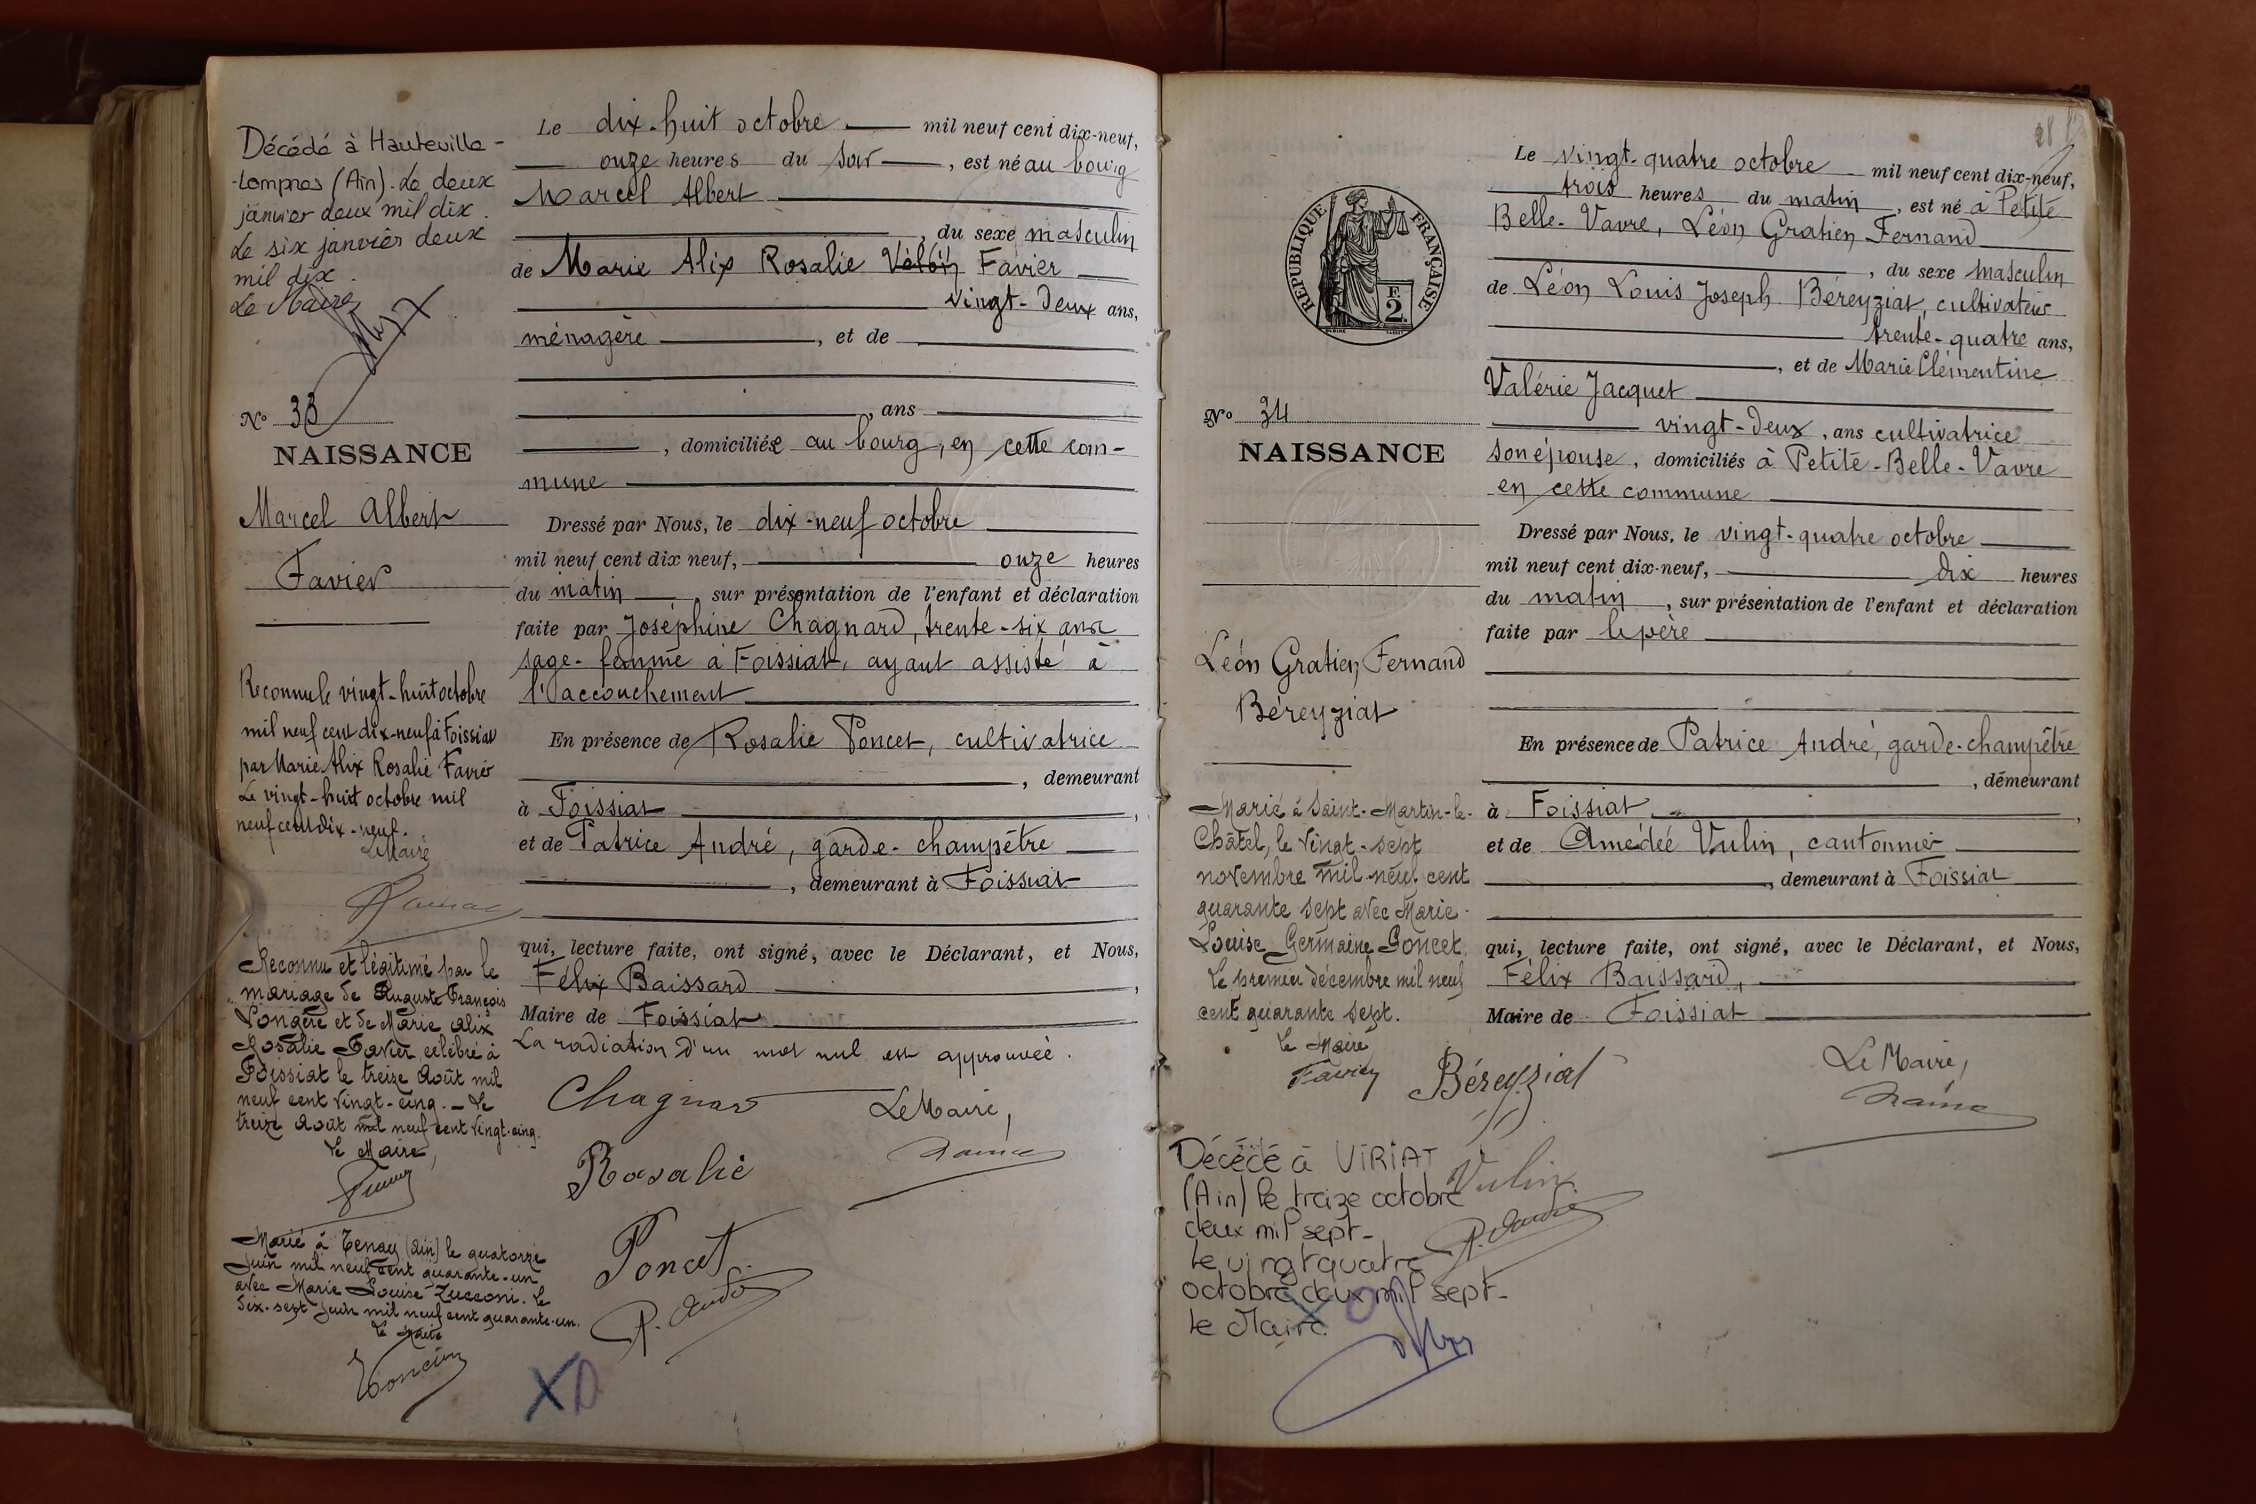 Décédé à Hauteville-
-Lompnes (Ain). Le deux
janvier deux mil dix.
Le six janvier deux
mil dix.
Le Maire
No 33
NAISSANCE
Marcel Albert
Favier
Reconnu le vingt-huit octobre
mil neuf cent dix-neuf à Foissiat
par Marie Alix Rosalie Favier
Le vingt-huit octobre mil
neuf cent dix-neuf.
Le Maire
Reconnu et légitimé par le
mariage de Auguste François
et de Marie Alix
Rosalie Favier célébré à
Foissiat le treize Août mil
neuf cent vingt-cinq. — Le
treize Août mil neuf cent vingt-cinq.
Le Maire,
Marié à Tenay (Ain) le quatorze
Juin mil neuf cent quarante-un
avec Marie Louise Zucconi. Le
dix-sept Juin mil neuf cent quarante-un.
Le Maire
Le dix-huit octobre mil neuf cent dix-neuf,
onze heures du soir, est né au bourg
Marcel Albert
, du sexe masculin
de Marie Alix Rosalie Favier
vingt-deux ans,
ménagère, et de
, ans
, domiciliée au bourg, en cette com-
mune
Dressé par Nous, le dix-neuf octobre
mil neuf cent dix neuf, onze heures
du matin, sur présentation de l'enfant et déclaration
faite par Joséphine Chagnard, trente-six ans
sage-femme à Foissiat, ayant assisté à
l'accouchement
En présence de Rosalie Poncet, cultivatrice
, demeurant
à Foissiat,
et de Patrice André, garde-champêtre
, demeurant à Foissiat
qui, lecture faite, ont signé, avec le Déclarant, et Nous,
Félix Baissard,
Maire de Foissiat
La radiation d'un mot nul est approuvée.
Chagnard
Le Maire,
Rosalie
Poncet
P. André
X D
Le vingt-quatre octobre mil neuf cent dix-neuf,
trois heures du matin, est né à Petite
Belle-Vavre, Léon Gratien Fernand
, du sexe masculin
de Léon Louis Joseph Béreyziat, cultivateur
trente-quatre ans,
, et de Marie Clémentine
Valérie Jacquet
vingt-deux, ans cultivatrice
son épouse, domiciliés à Petite-Belle-Vavre
en cette commune
Dressé par Nous, le vingt-quatre octobre
mil neuf cent dix-neuf, dix heures
du matin, sur présentation de l'enfant et déclaration
faite par le père
En présence de Patrice André, garde-champêtre
, demeurant
à Foissiat,
et de Amédée Vulin, cantonnier
, demeurant à Foissiat
qui, lecture faite, ont signé, avec le Déclarant, et Nous,
Félix Baissard,
Maire de Foissiat
Béreyziat
Le Maire,
Vulin
P. André
RÉPUBLIQUE FRANÇAISE
F.
2.
No 34
NAISSANCE
Léon Gratien Fernand
Béreyziat
Marié à Saint-Martin-le-
Châtel, le vingt-sept
novembre mil neuf cent
quarante sept avec Marie-
Louise Germaine Poncet,
Le premier décembre mil neuf
cent quarante sept.
Le Maire
Favier
Décédé à VIRIAT
(Ain) le treize octobre
deux mil sept-
le vingt quatre
octobre deux mil sept-
le Maire.